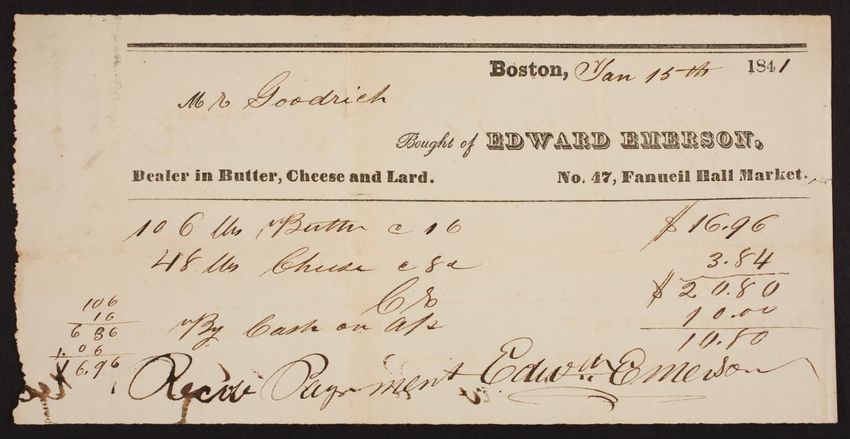 Boston, Jan 15th 1841
Mr Goodrich
Bought of EDWARD EMERSON,
Dealer in Butter, Cheese and Lard. No. 47, Fanueil Hall Market.
106 lbs Butter c 16 $16.96
48 lbs Cheese c 8 3.84
Cr $20.80
By Cash on a/c 10.00
10.80
106
16
636
1.06
16.96
Recd Payment Edwd Emerson